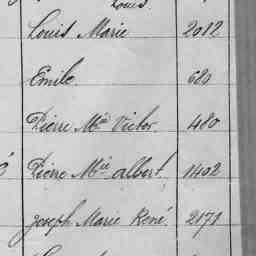 Louis
Louis Marie 2012
Emile 680
Pierre Mie Victor 480
Pierre Mie albert 1402
Joseph Marie René 2171